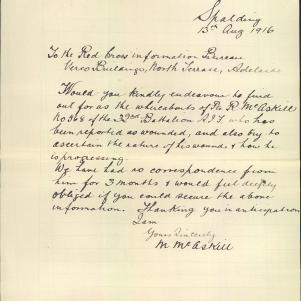 Spalding
13th Aug 1916
To the Red Cross Information Bureau
Verco Buildings, North Terrace, Adelaide
Would you kindly endeavour to find
out for us the whereabouts of Pte R. McAskill
No 368 of the 32nd Battalion A.I.F who has
been reported as wounded, and also try to
ascertain the nature of his wounds & how he
is progressing.
We have had no correspondence from
him for 3 months & would feel deeply
obliged if you could secure the above
information. Thanking you in anticipation
I am
Yours Sincerely
M McAskill